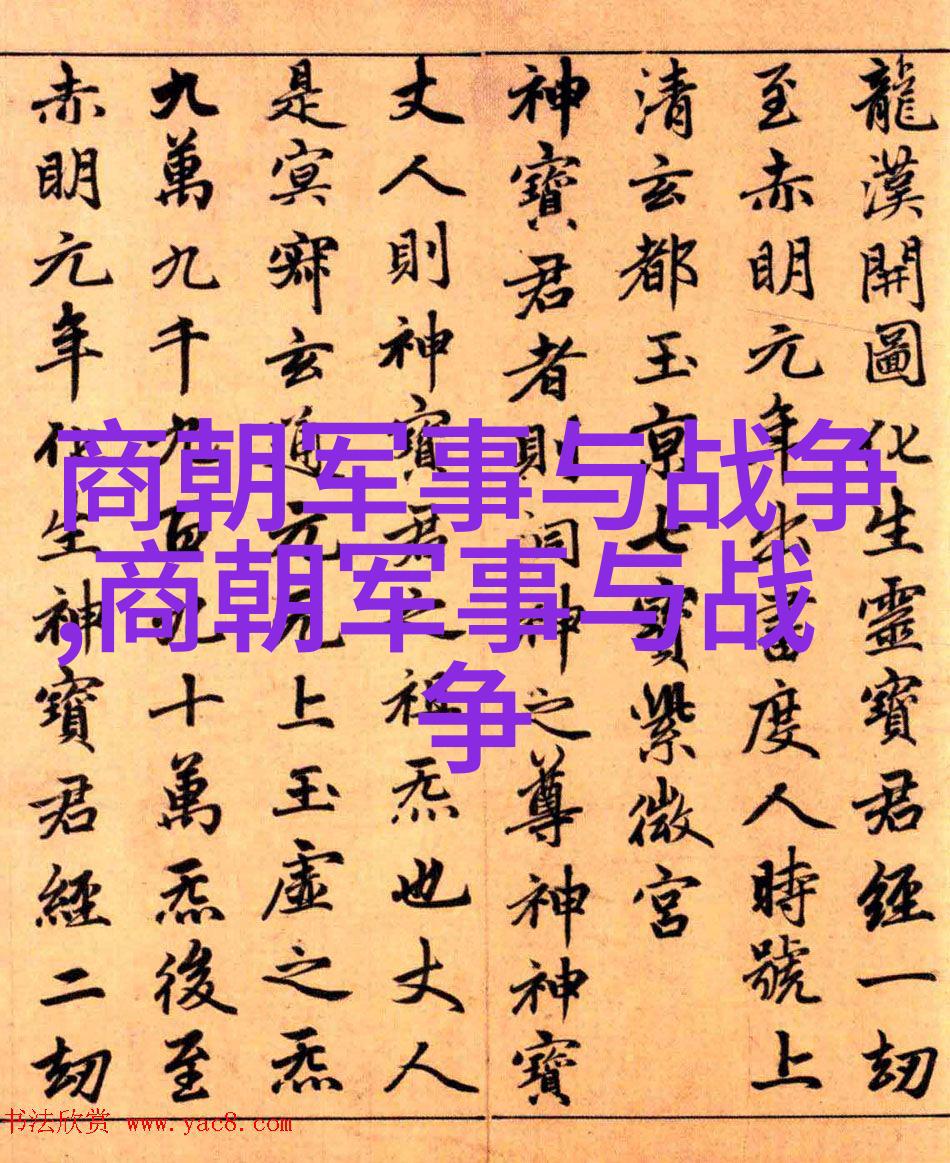 龍漢開圖化生靈寶君經一劫
至赤明元年出書度人時號上
清玄都玉京七寶紫微宮
神寶君者則洞神之尊神神寶
丈人則神寶君之祖炁也丈人
是寘㝕玄通元无上玉虛之炁
九萬九千九百九十萬炁後至
赤明元年化生神寶君經二劫
商朝军事与战争
,商朝军事与战
争
书法欣赏 www.yac8.com